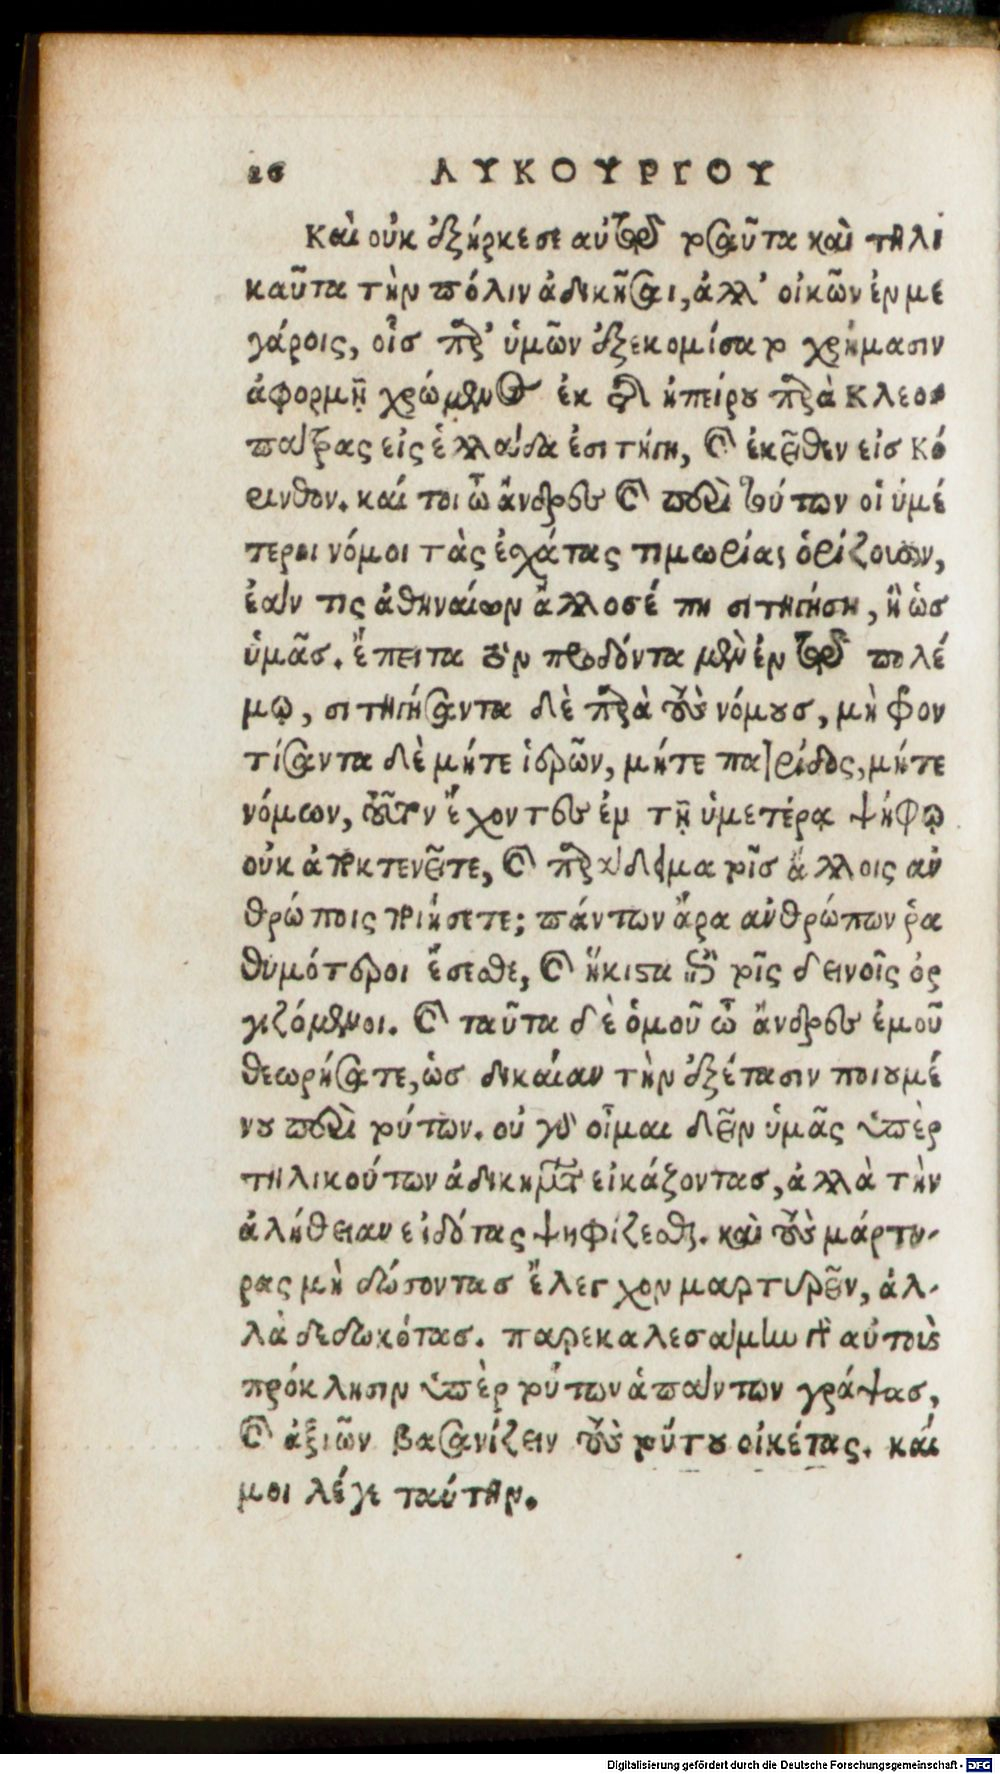 26 ΛΥΚΟΥΡΓΟΥ
Καὶ οὐκ ἐξήρκεσε αὐτῷ τοσαῦτα καὶ τηλι
καῦτα τὴν πόλιν ἀδικῆσαι, ἀλλ' οἰκῶν ἐν με
γάροις, οἷσ παρ' ὑμῶν ἐξεκομίσατο χρήμασιν
ἀφορμῇ χρώμενος ἐκ τῆς ἠπείρου παρὰ Κλεο-
πάτρας εἰς ἑλλάδα ἐσιτήγη, καὶ ἐκεῖθεν εἰσ Κό
ρινθον. καί τοι ὦ ἄνδρες καὶ περὶ τούτων οἱ ὑμέ
τεροι νόμοι τὰς ἐσχάτας τιμωρίας ὁρίζουσιν,
ἐάν τις ἀθηναίων ἄλλοσέ πη σιτηγήση, ἢ ὡσ
ὑμᾶσ. ἔπειτα τὸν προδόντα μὲν ἐν τῷ πολέ
μῳ, σιτηγήσαντα δὲ παρὰ τοὺς νόμουσ, μὴ φρον
τίσαντα δὲ μήτε ἱερῶν, μήτε πατρίδος, μήτε
νόμων, τοῦτον ἔχοντες ἐμ τῇ ὑμετέρᾳ ψήφῳ
οὐκ ἀποκτενεῖτε, καὶ παράδειγμα τοῖσ ἄλλοις ἀν
θρώποις ποιήσετε; πάντων ἄρα ἀνθρώπων ῥα
θυμότεροι ἔσεσθε, καὶ ἥκιστα ἐπὶ τοῖς δεινοῖς ὀρ
γιζόμενοι. καὶ ταῦτα δὲ ὁμοῦ ὦ ἄνδρες ἐμοῦ
θεωρήσατε, ὡσ δικαίαν τὴν ἐξέτασιν ποιουμέ
νου περὶ τούτων. οὐ γὰρ οἶμαι δεῖν ὑμᾶς ὑπὲρ
τηλικούτων ἀδικημάτων εἰκάζοντασ, ἀλλὰ τὴν
ἀλήθειαν εἰδότας ψηφίζεσθαι. καὶ τοὺς μάρτυ-
ρας μὴ δώσοντασ ἔλεγχον μαρτυρεῖν, ἀλ-
λὰ δεδωκότασ. παρεκαλεσάμην γὰρ αὐτοὺς
πρόκλησιν ὑπὲρ τούτων ἁπάντων γράψασ,
καὶ ἀξιῶν βασανίζειν τοὺς τούτου οἰκέτας. καί
μοι λέγε ταύτην.
Digitalisierung gefördert durch die Deutsche Forschungsgemeinschaft - DFG